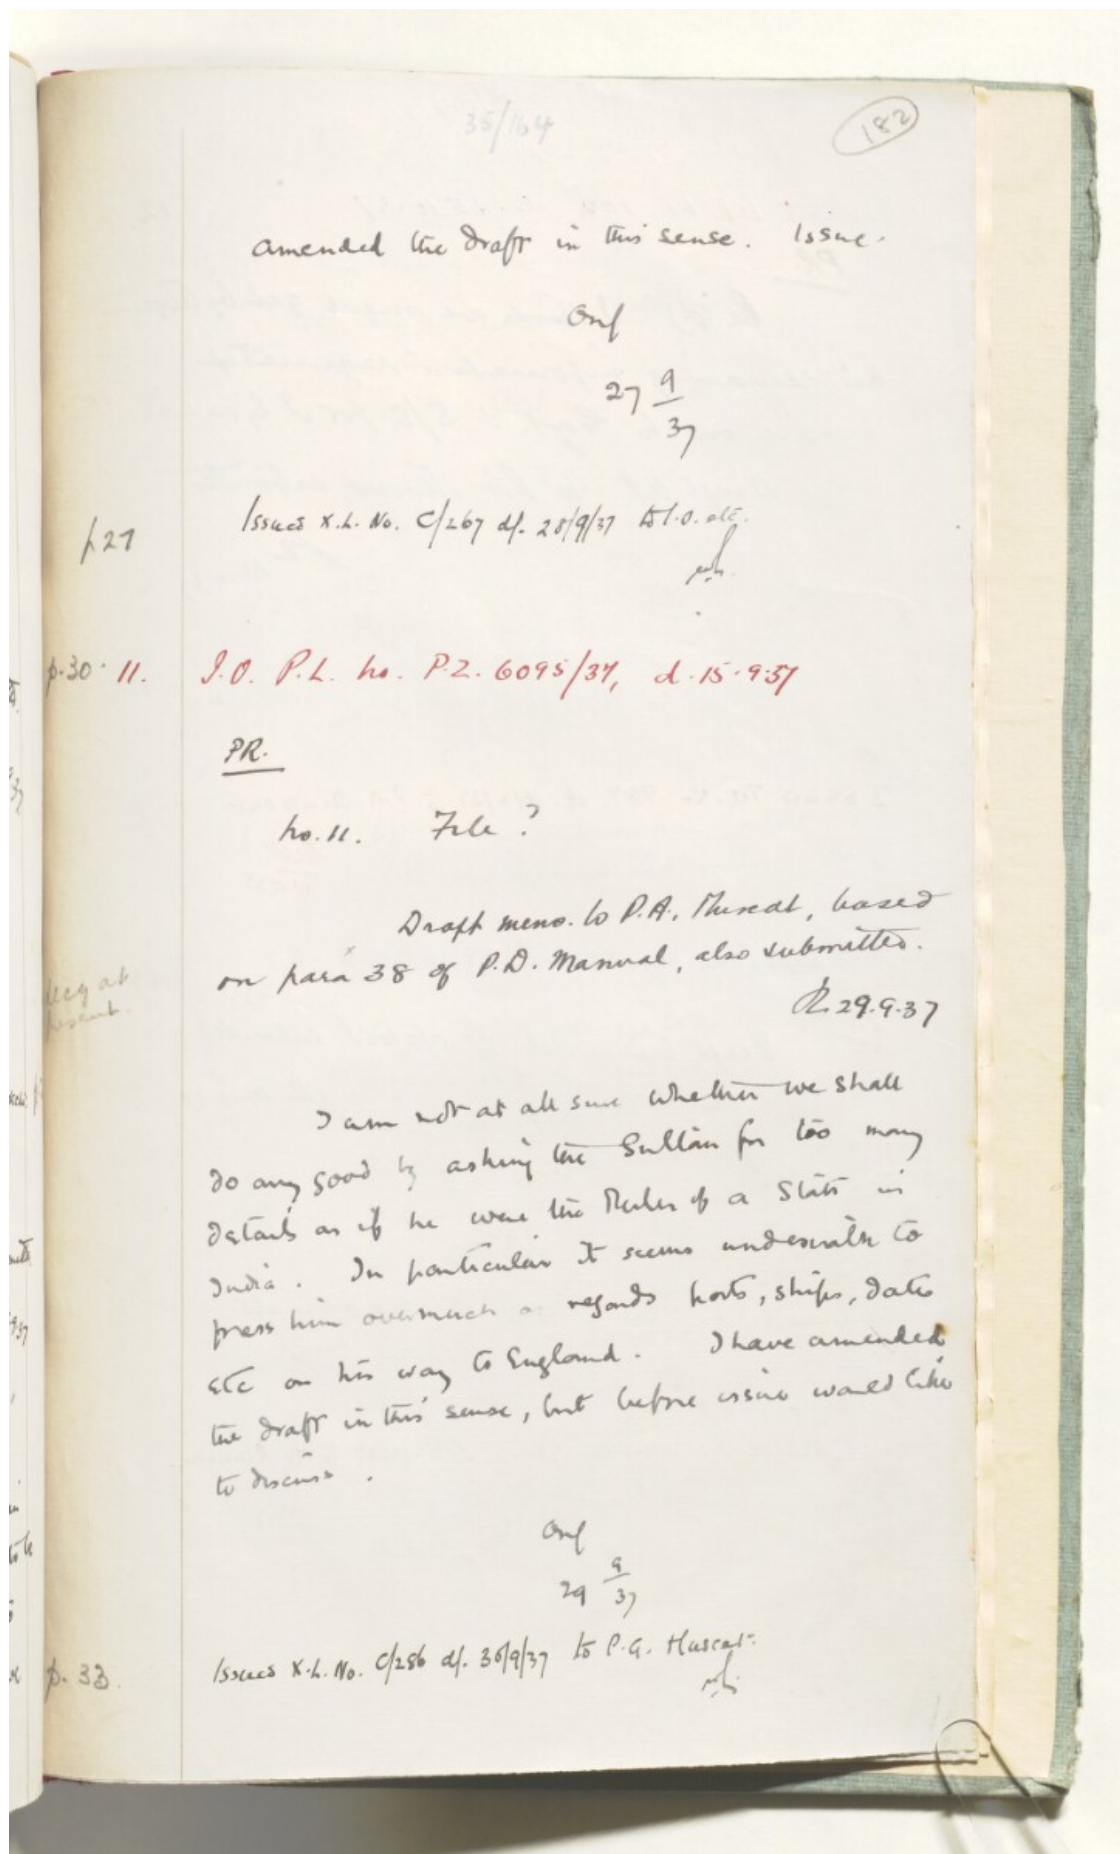 35/164
182
amended the draft in this sense. Issue.
27 9/37
p 27
Issued X.L. No. C/267 d/. 28/9/37 to I.O. etc.
p.30. 11. I.O. P.L. No. P.Z. 6095/37, d. 15.9.37
PR.
No. 11. File ?
Draft memo. to P.A., Muscat, based
on para 38 of P.D. Manual, also submitted.
29.9.37
I am not at all sure whether we shall
do any good by asking the Sultan for too many
details as if he were the Ruler of a State in
India. In particular it seems undesirable to
press him overmuch as regards ports, ships, dates
etc on his way to England. I have amended
the draft in this sense, but before issue would like
to discuss.
29 9/37
p. 33
Issued X.L. No. C/286 d/. 30/9/37 to P.A. Muscat.